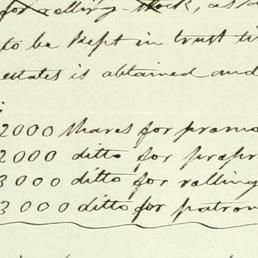 for rolling stock, as
to be kept in trust
estates is obtained and
2000 shares for promo
2000 ditto for propr
3000 ditto for rolling
3000 ditto for patron